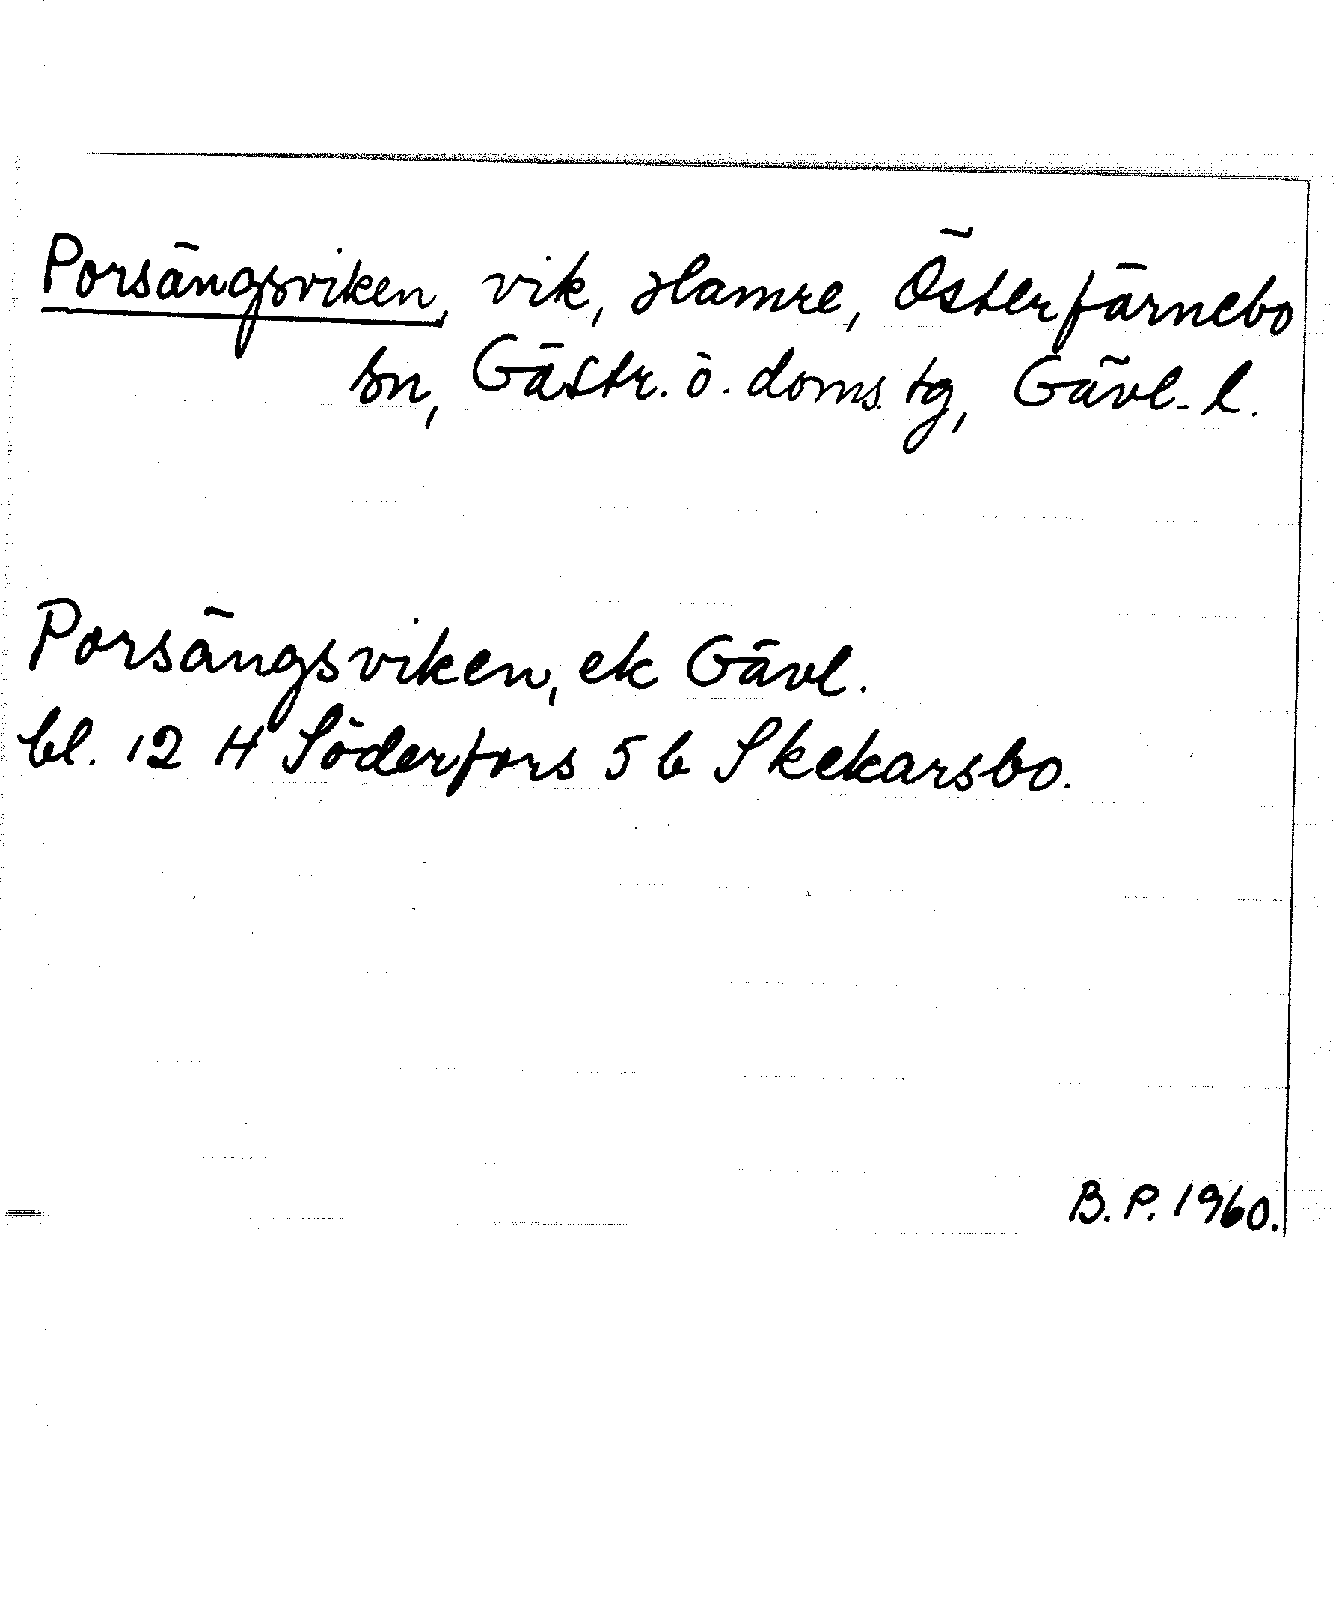 Porsängsviken, vik, Hamre, Österfärnebo
sn, Gästr. ö. doms. tg, Gävl. l.
Porsängsviken, ek Gävl.
bl. 12 H Söderfors 5 b Skekarsbo.
B. P. 1960.